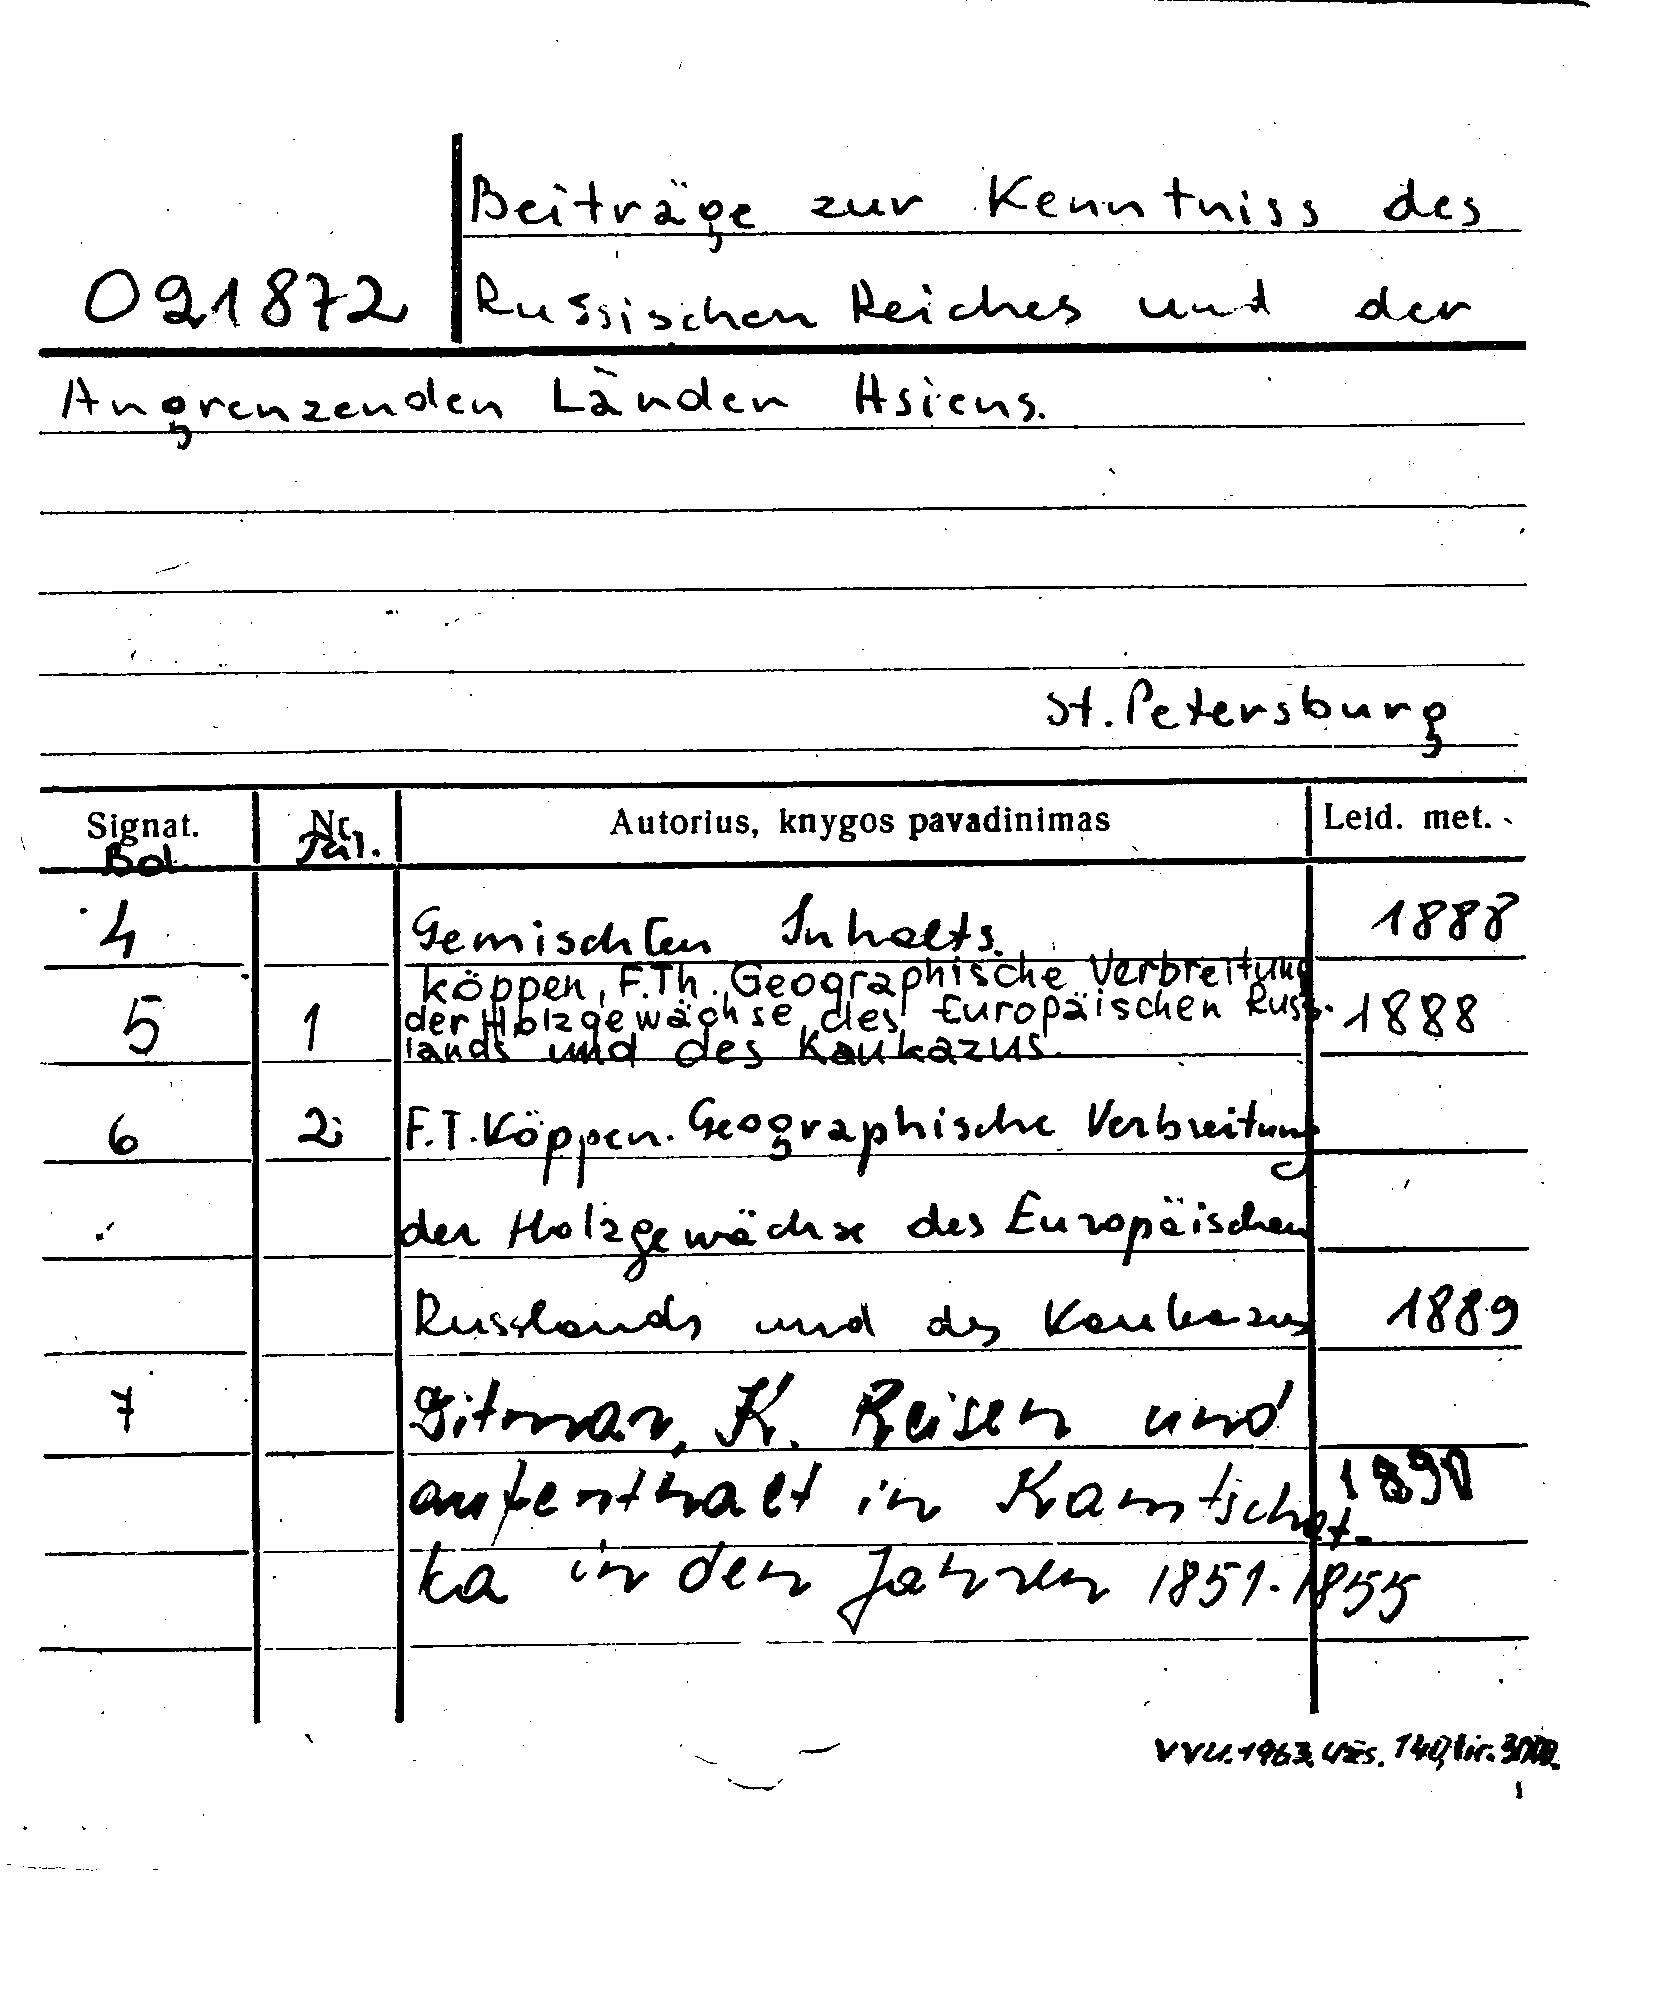 Beiträge zur Kenntniss des
091872 Russischen Reiches und der
Angrenzenden Länden Asiens.
St. Petersburg
Signat. Nr. Autorius, knygos pavadinimas Leid. met.
Bd.
4 Gemischten Inhalts. 1888
Köppen, F.Th. Geographische Verbreitung
5 1 der Holzgewächse des Europäischen Russ- 1888
lands und des Kaukazus.
6 2 F.T. Köppen. Geographische Verbreitung
der Holzgewächse des Europäischen
Russlands und des Kaukazus 1889
7 Ditmar, K. Reisen und
aufenthalt in Kamtschat- 1890
ka in den Jahren 1851-1855
VVU. 1963. Užs. 140, tir.